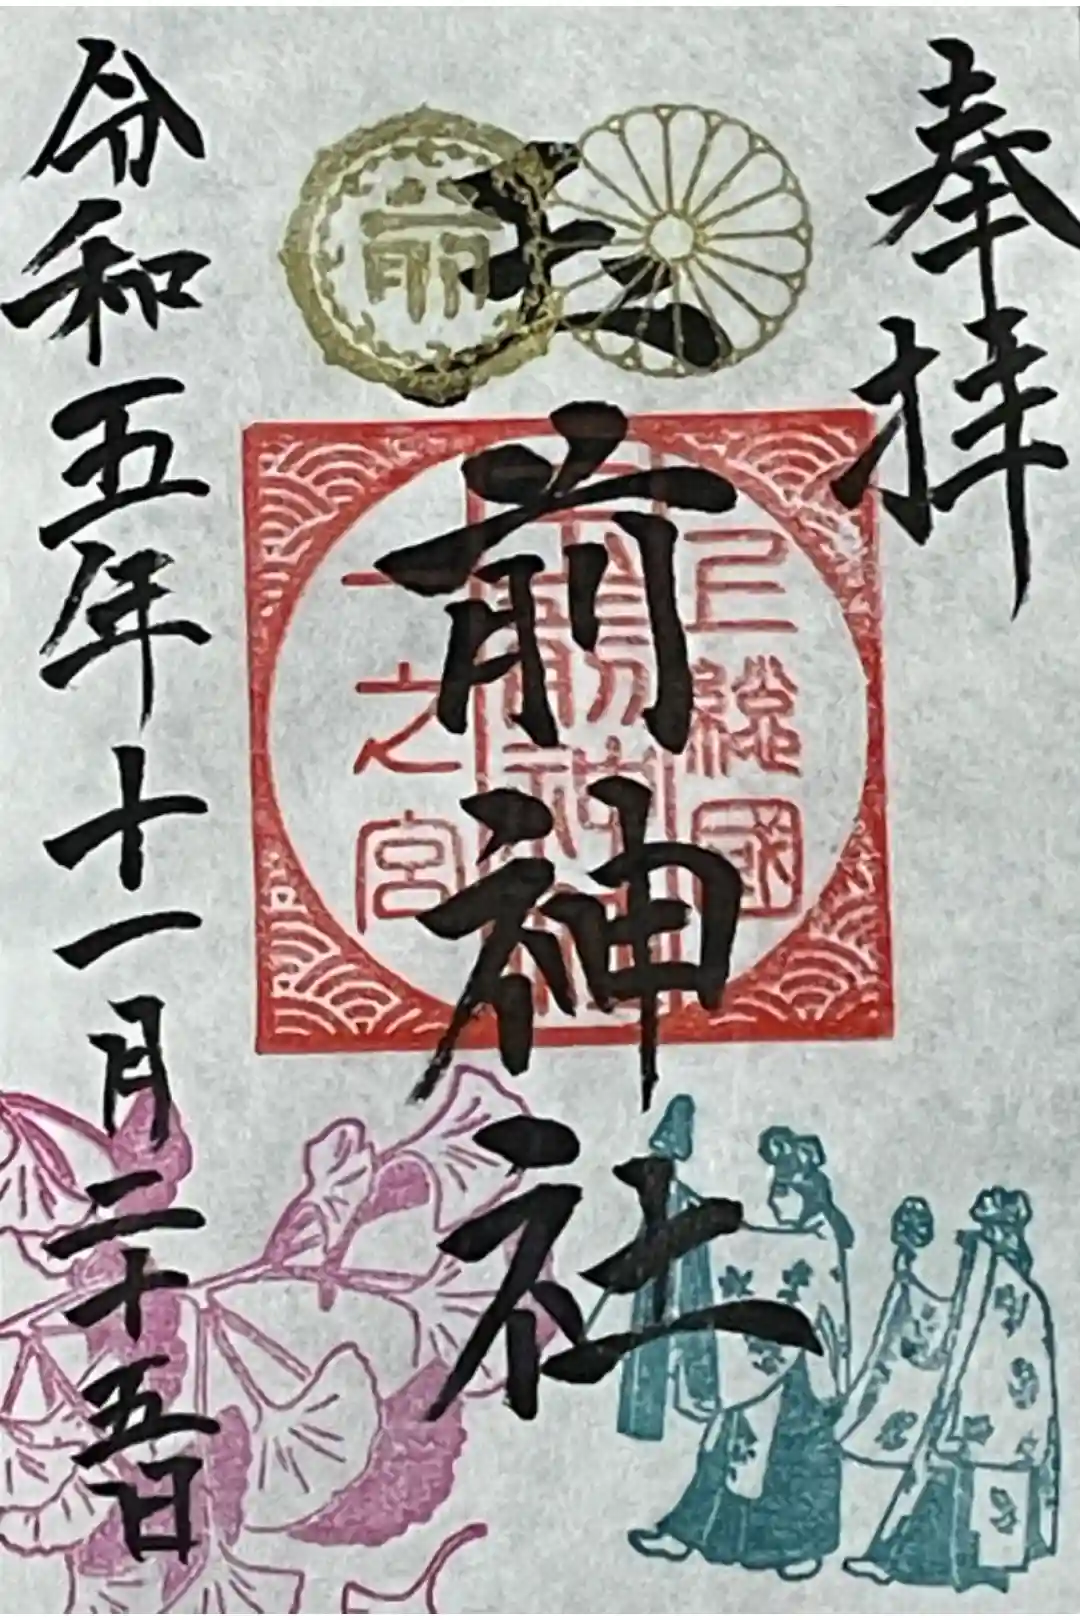 奉拝
上総國
玉前神社
一之宮
前
玉前神社
令和五年十一月二十五日